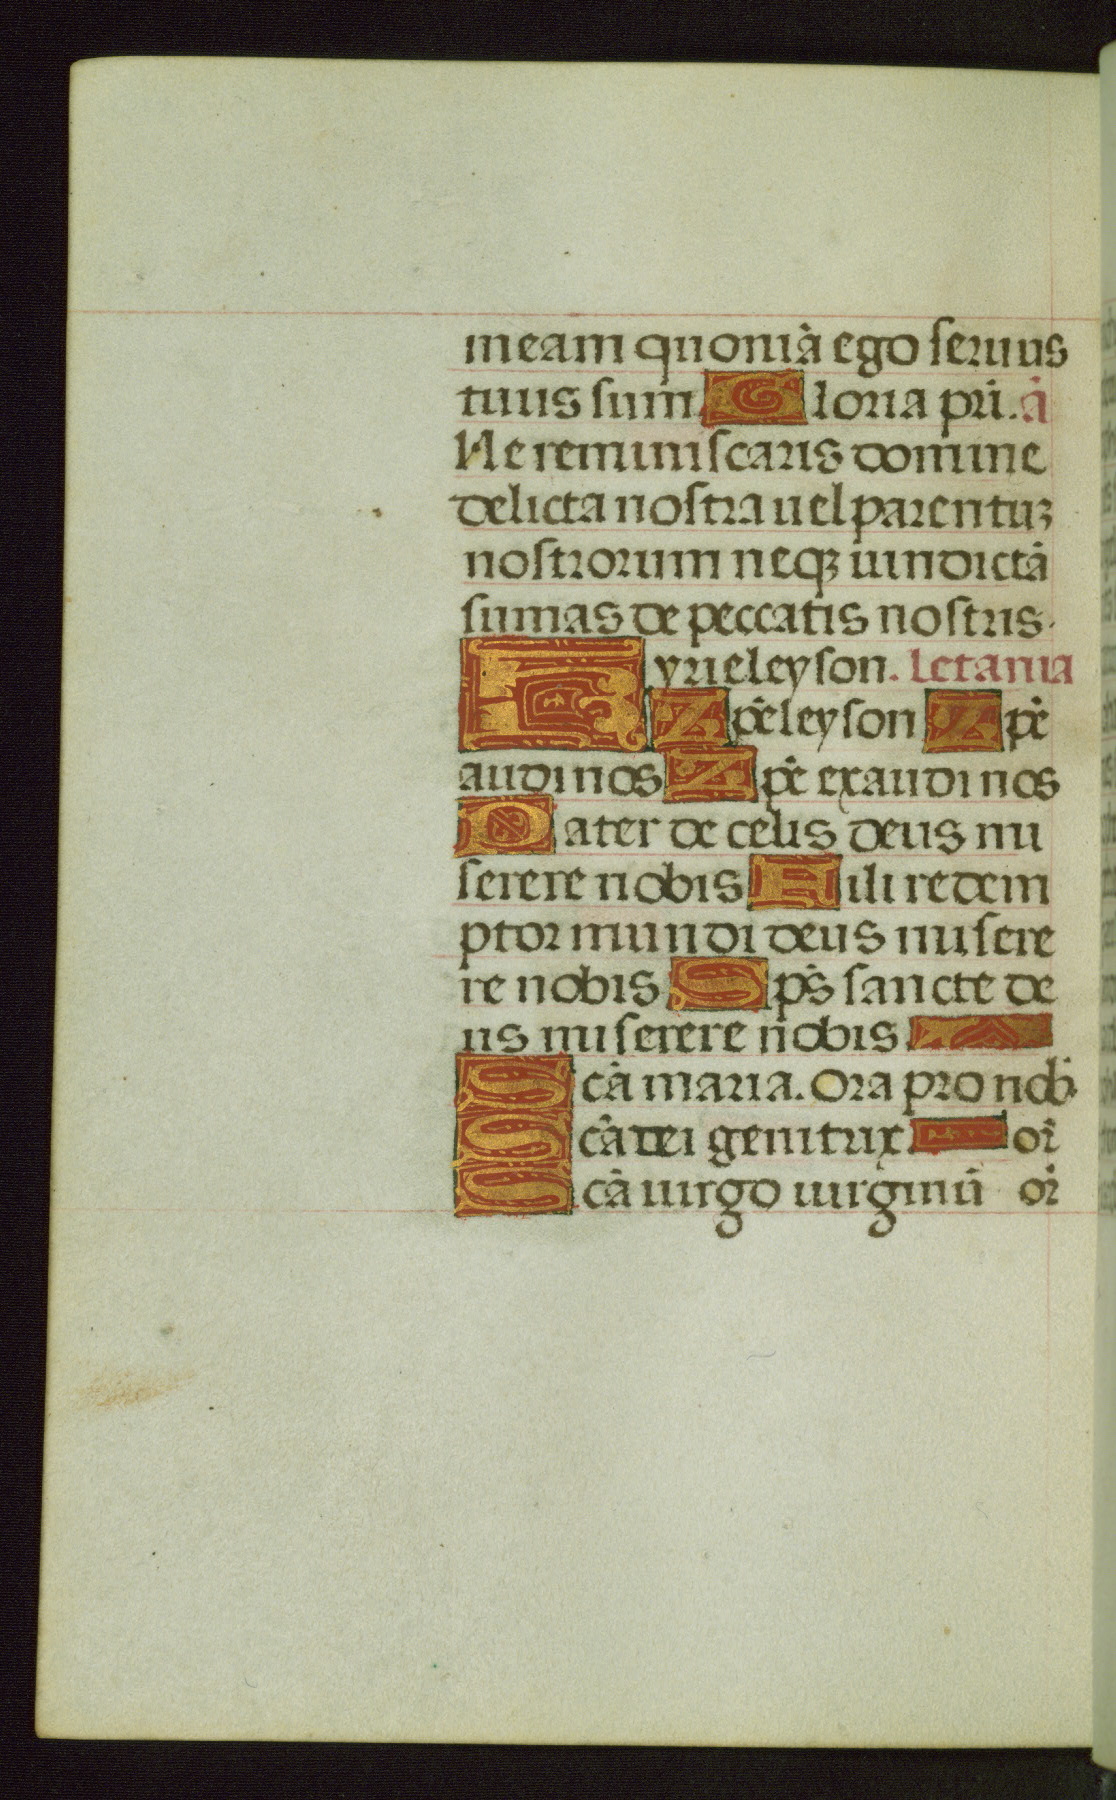 meam quoniā ego seruus
tuus sum Gloria pri. ā
Ne reminiscaris domine
delicta nostra uel parentuꝫ
nostrorum neqꝫ uindictā
sumas de peccatis nostris.
Kyrieleyson. letania
Xpe̅leyson Xpe̅
audi nos Xpe̅ exaudi nos
Pater de celis deus mi
serere nobis Fili redem
ptor mundi deus misere
re nobis Sps̅ sancte de
us miserere nobis
Scā maria. Ora pro nob̄.
Scā dei genitrix or̄
Scā uirgo uirginū or̄